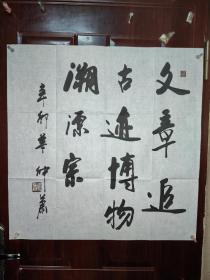 文章追
古迹博物
溯源宗
辛卯 仲萧